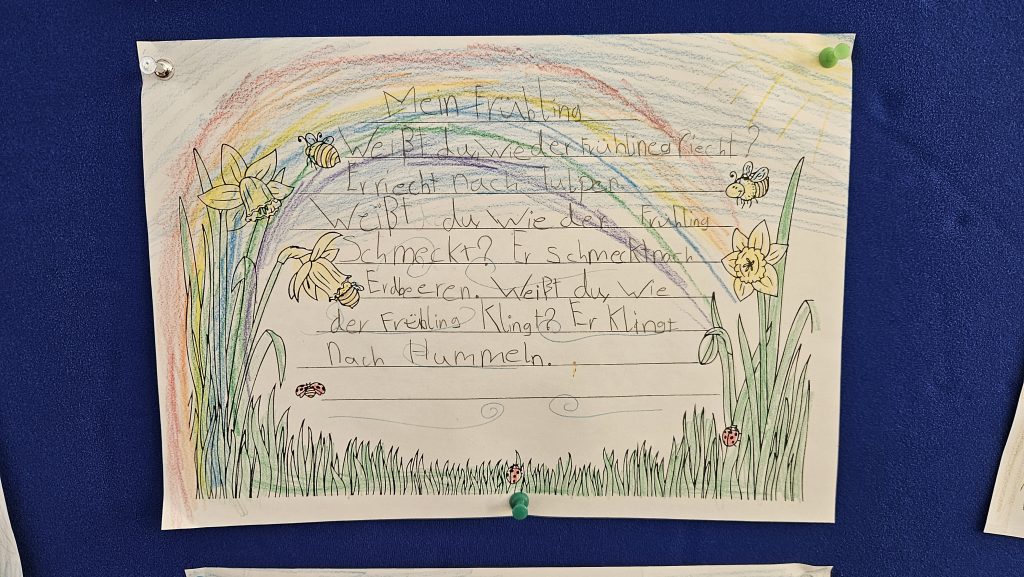 Mein Frühling
Weißt du wie der Frühling riecht?
Er riecht nach Tulpen
Weißt du wie der Frühling
Schmeckt? Er schmeckt nach
Erdbeeren. Weißt du, wie
der Frühling Klingt? Er Klingt
nach Hummeln.